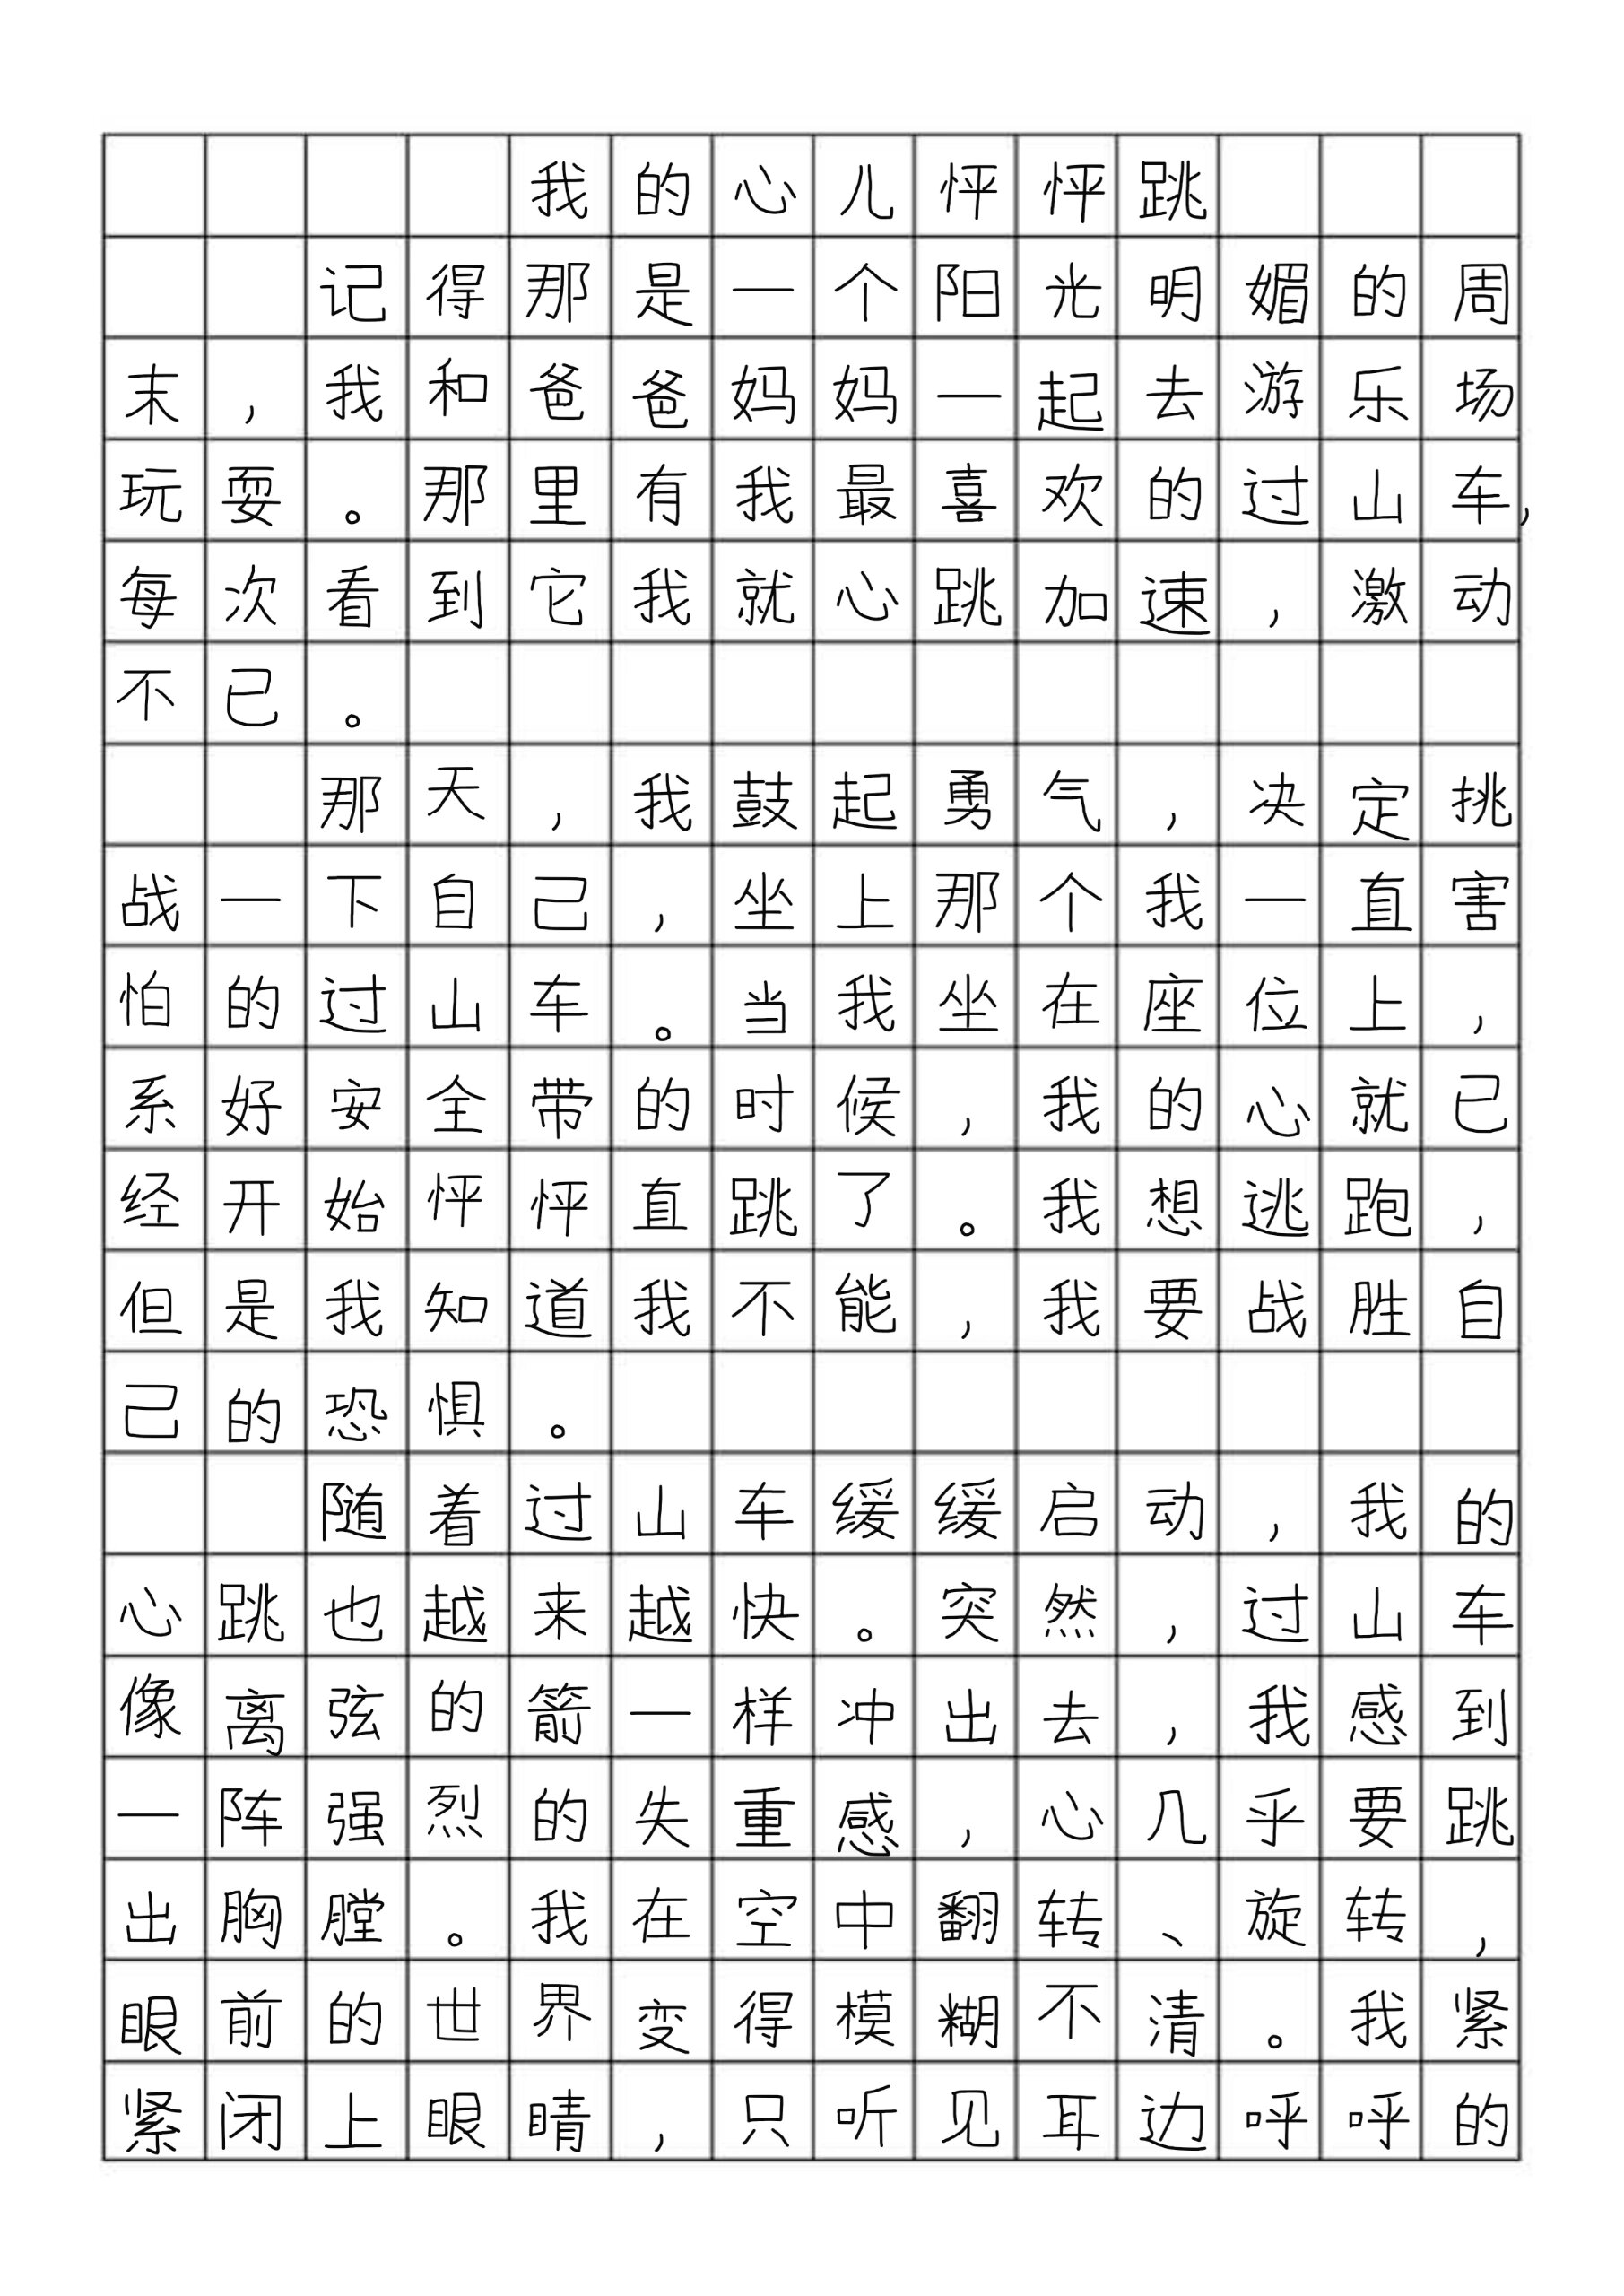 我的心儿怦怦跳
记得那是一个阳光明媚的周
末，我和爸爸妈妈一起去游乐场
玩耍。那里有我最喜欢的过山车，
每次看到它我就心跳加速，激动
不已。
那天，我鼓起勇气，决定挑
战一下自己，坐上那个我一直害
怕的过山车。当我坐在座位上，
系好安全带的时候，我的心就已
经开始怦怦直跳了。我想逃跑，
但是我知道我不能，我要战胜自
己的恐惧。
随着过山车缓缓启动，我的
心跳也越来越快。突然，过山车
像离弦的箭一样冲出去，我感到
一阵强烈的失重感，心几乎要跳
出胸膛。我在空中翻转、旋转，
眼前的世界变得模糊不清。我紧
紧闭上眼睛，只听见耳边呼呼的